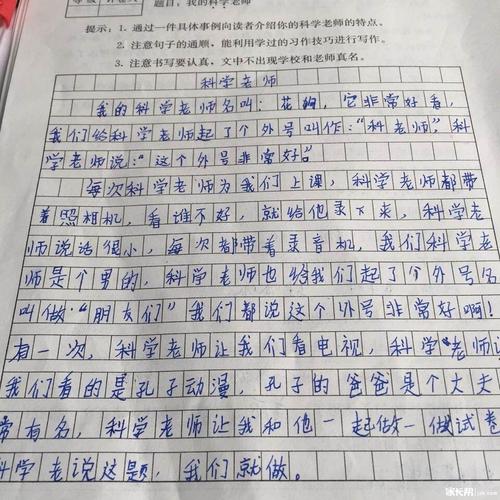 题目:我的科学老师
提示:1. 通过一件具体事例向读者介绍你的科学老师的特点。
2. 注意句子的通顺,能利用学过的习作技巧进行写作。
3. 注意书写要认真,文中不出现学校和老师真名。
科学老师
我的科学老师名叫:花,它非常好看,
我们给科学老师起了个外号叫作:“科老师”,科
学老师说:“这个外号非常好。”
每次科学老师为我们上课,科学老师都带
着照相机,看谁不好,就给他录下来,科学老
师说话很小,每次都带着录音机,我们科学老
师是个男的,科学老师也给我们起了个外号名
叫做:“朋友们”我们都说这个外号非常好啊!
有一次,科学老师让我们看电视,科学老师让
我们看的是孔子动漫,孔子的爸爸是个大夫
常有名,科学老师让我和他一起做一做试卷
科学老说这题,我们就做。
家长帮